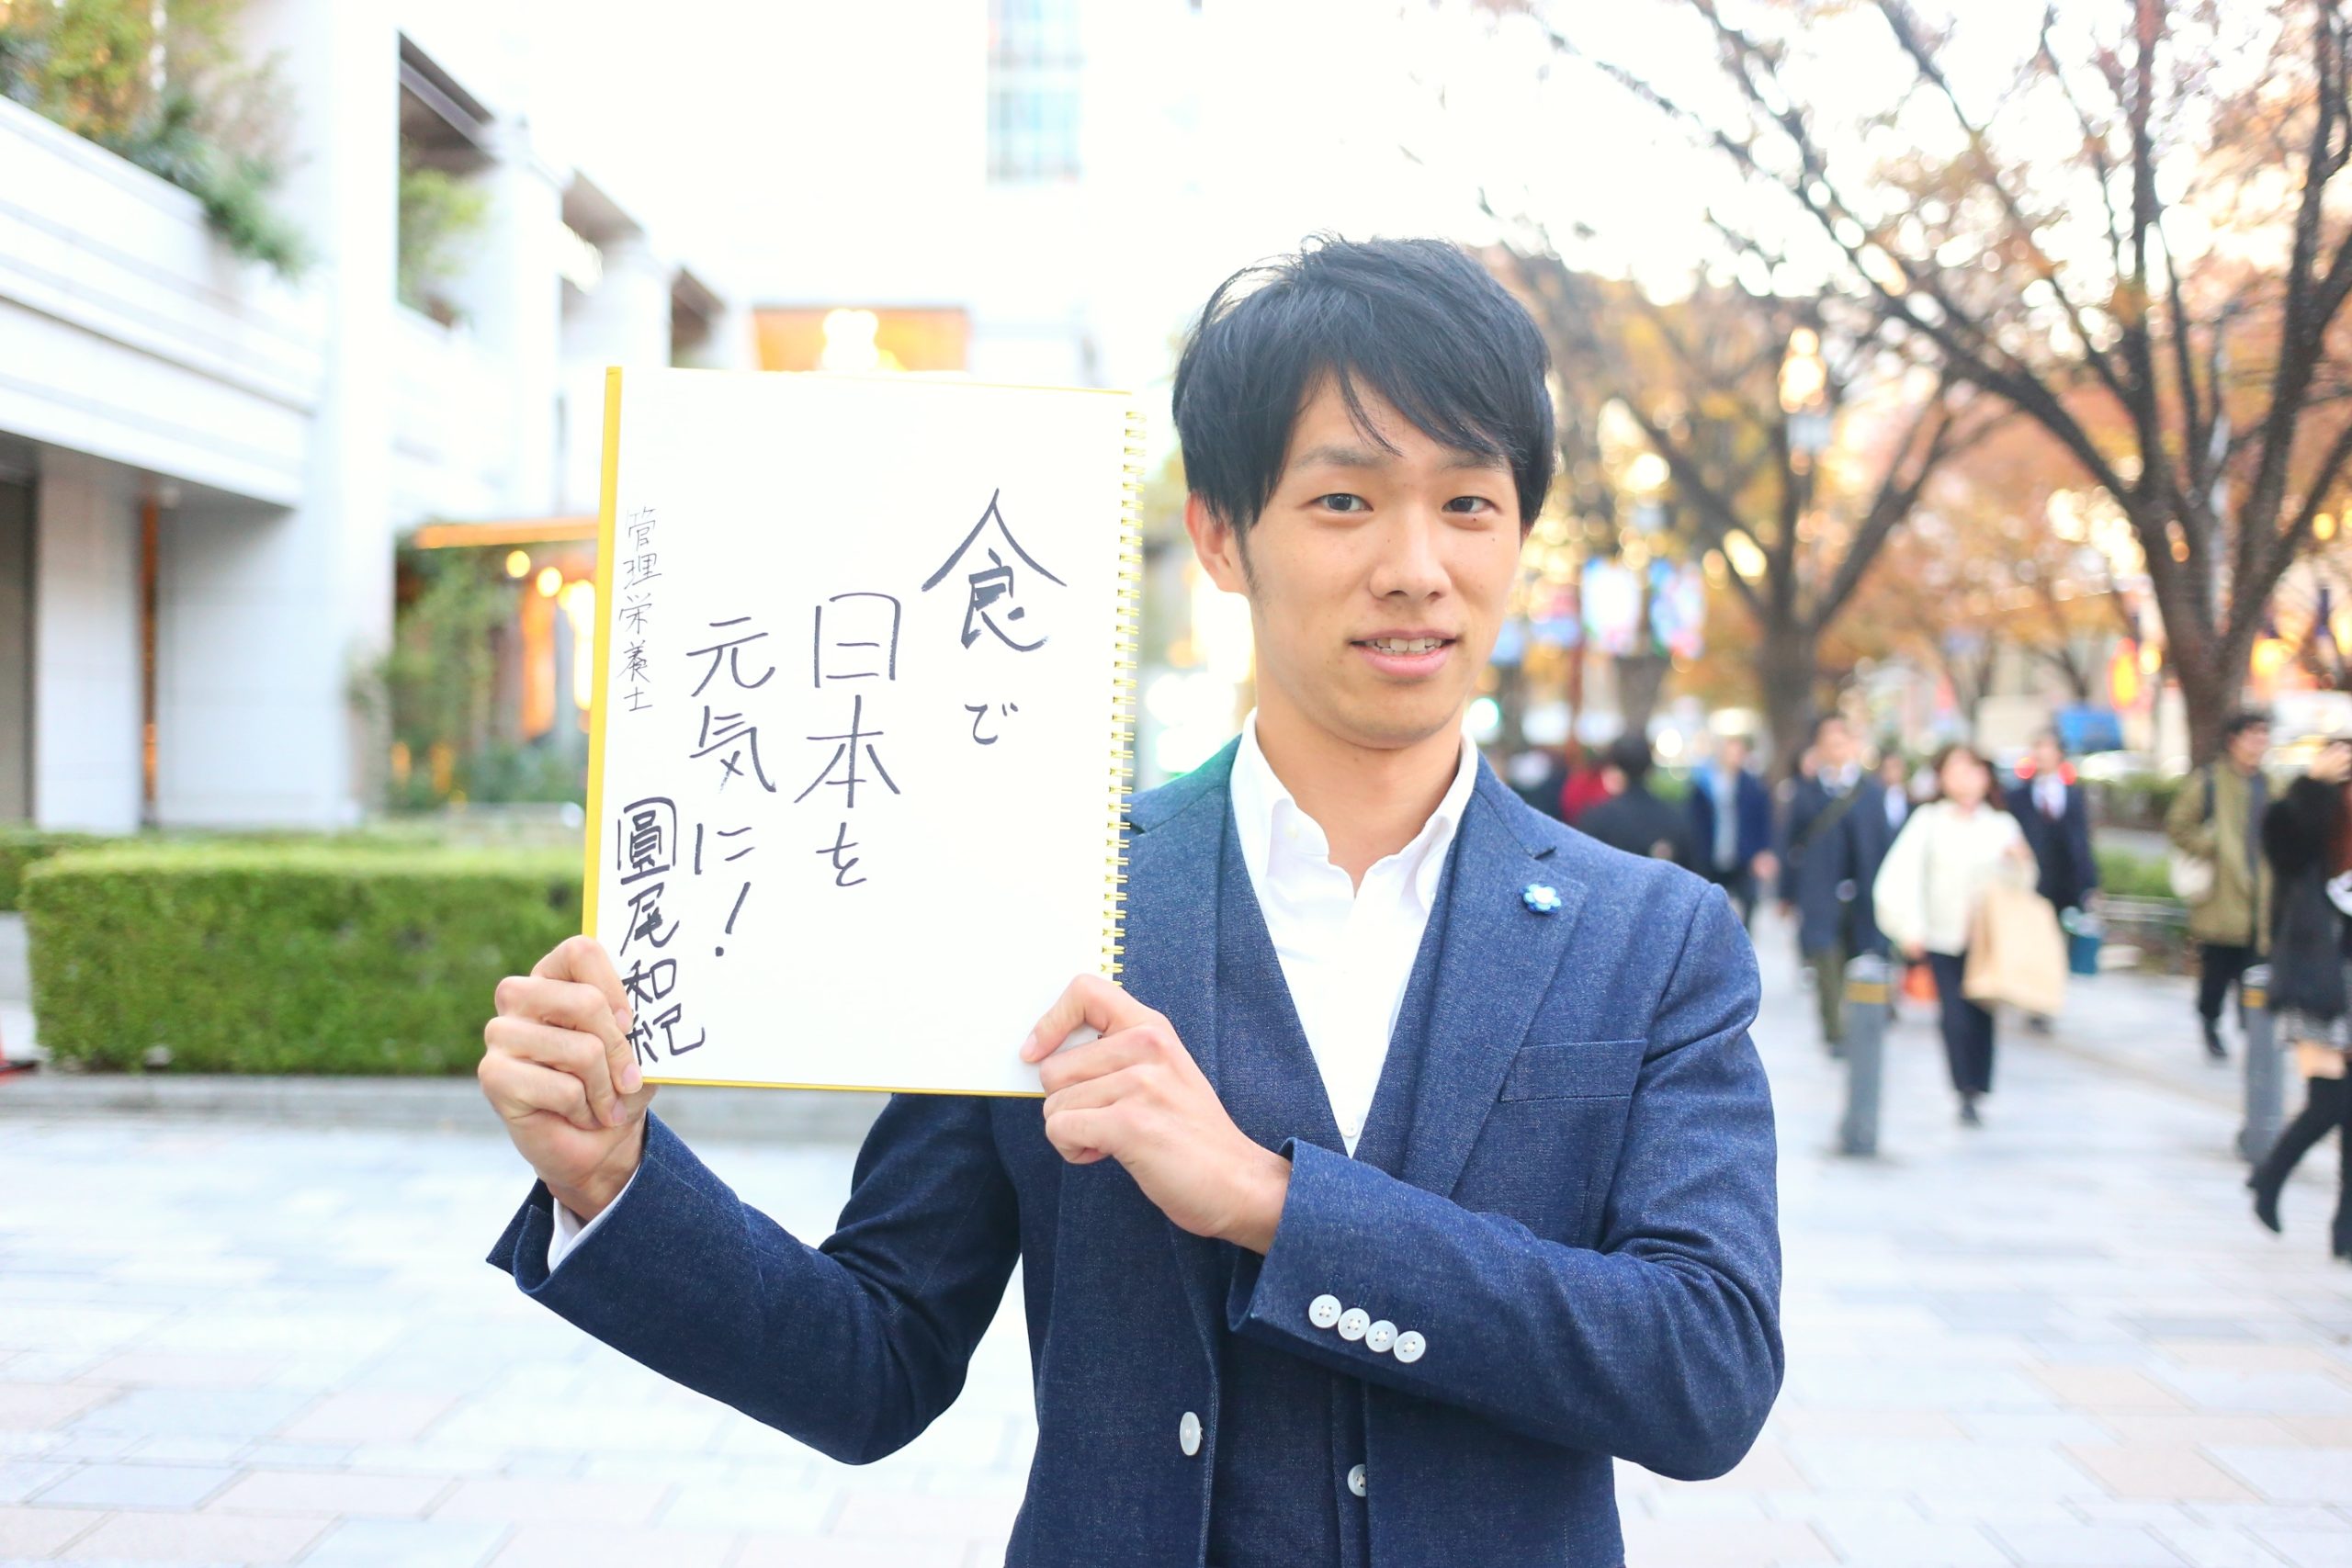 食で
日本を
元気に！
管理栄養士
圓尾和紀